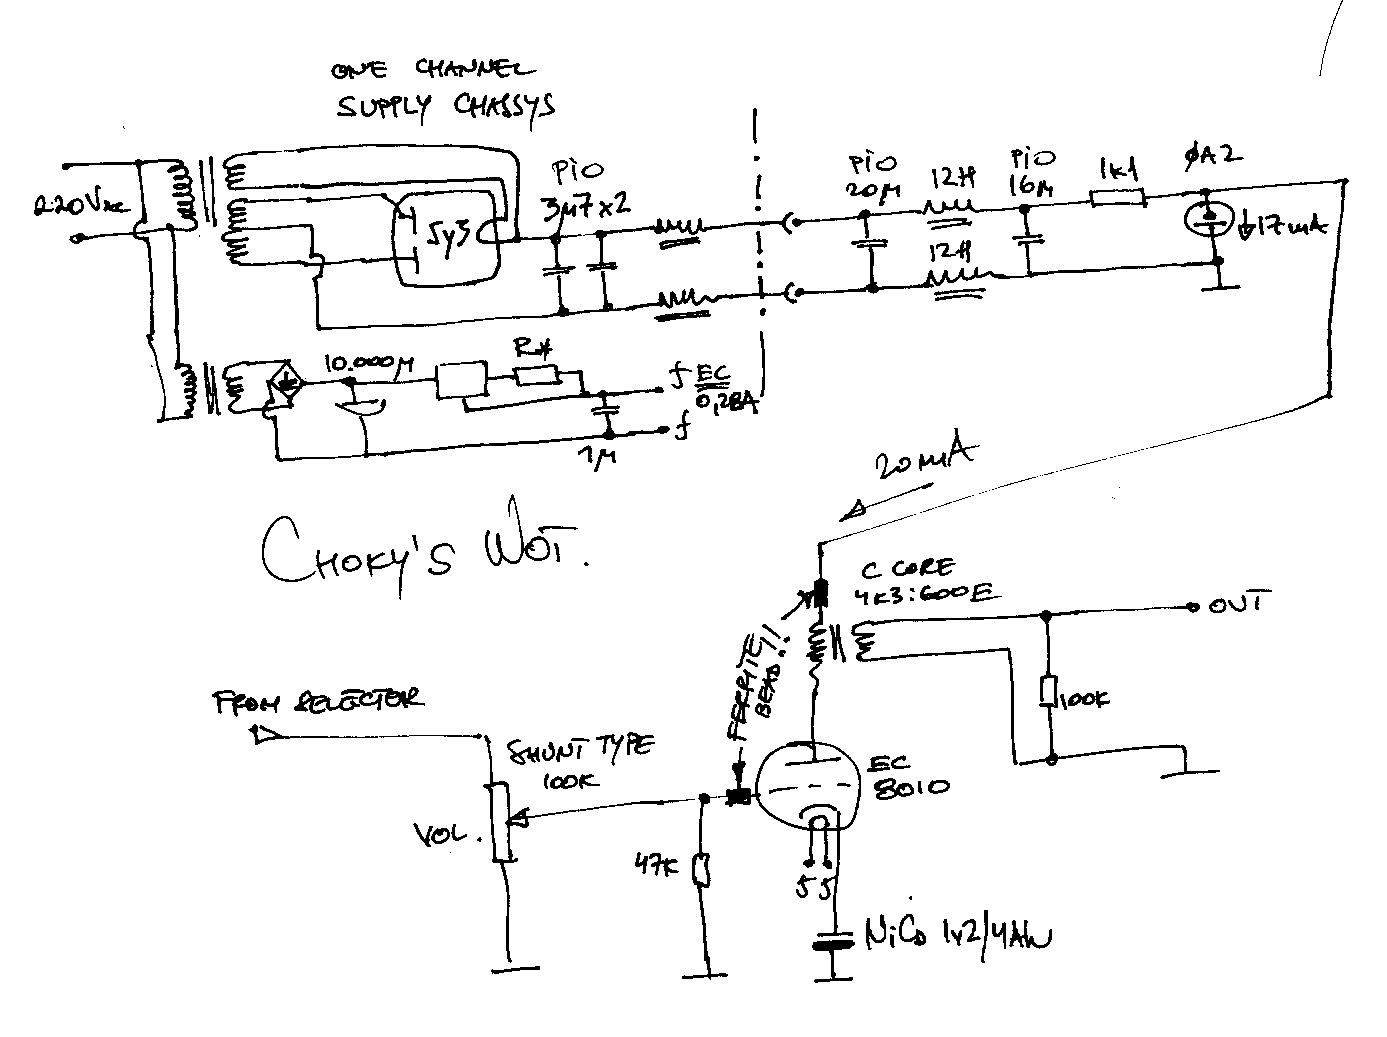 ONE CHANNEL
SUPPLY CHASSYS
220VAC
5Y3
PIO
3µ7×2
PIO
20µ
12H
12H
PIO
16µ
1K1
ØA2
17mA
10.000µ
R*
1µ
f
EC
0,28A
f
20mA
CHOKY'S WOT.
C CORE
4K3:600E
OUT
100K
FERRITE
BEAD!!
FROM SELECTOR
SHUNT TYPE
100K
VOL.
47K
EC
8010
NiCD 1V2/4Ah